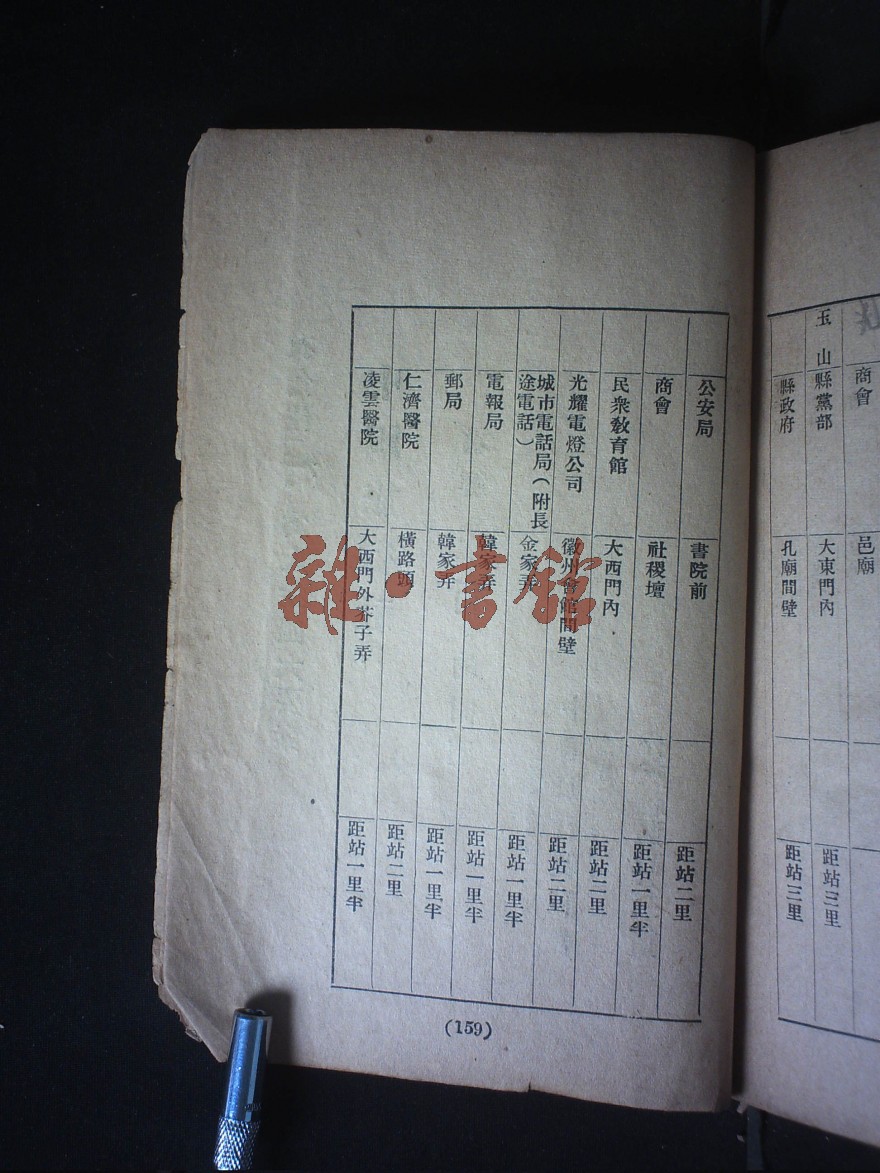 商會 邑廟
玉山 縣黨部 大東門內 距站三里
縣政府 孔廟間壁 距站三里
公安局 書院前 距站二里
商會 社稷壇 距站一里半
民衆敎育館 大西門內 距站二里
光耀電燈公司 徽州會館間壁 距站二里
城市電話局(附長途電話) 金家弄 距站一里半
電報局 韓家弄 距站一里半
郵局 韓家弄 距站一里半
仁濟醫院 橫路頭 距站二里
凌雲醫院 大西門外芥子弄 距站一里半
(159)
雜·書館